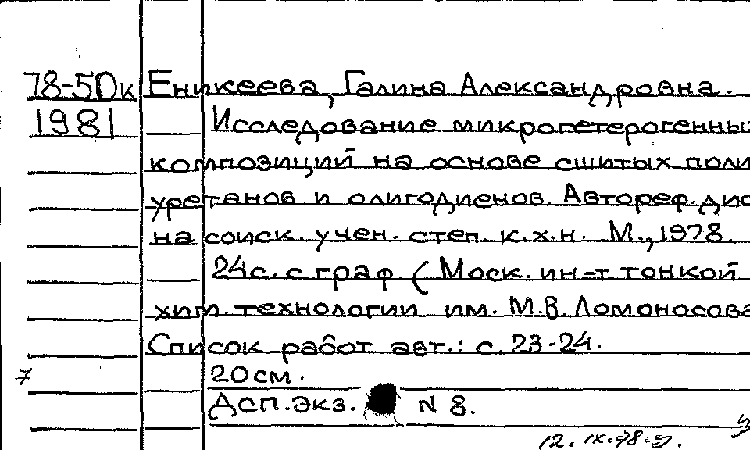 78-50к Еникеева, Галина Александровна.
1981 Исследование микрогетерогенны
композиций на основе сшитых поли
уретанов и олигодиенов. Автореф. дис
на соиск. учен. степ. к.х.н. М., 1978.
24с. с граф (Моск. ин-т тонкой
хим. технологии им. М.В. Ломоносова
Список работ авт.: с. 23-24.
20см.
Дсп. экз. N 8.